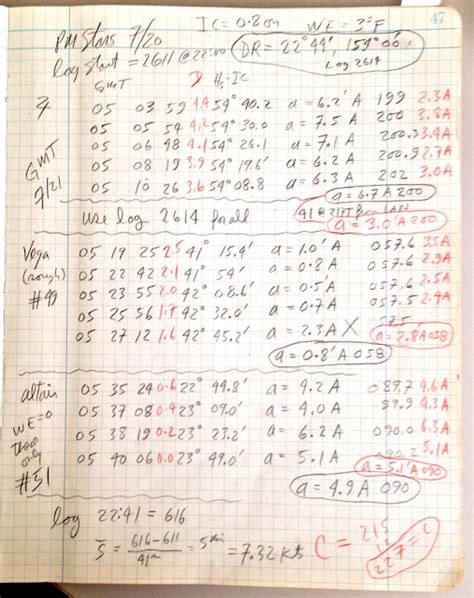 47
PM Stars 7/20 IC = 0.8 on WE = 3s F
log start = 2611 @ 22:00 DR = 22° 44', 159° 00' W
Log 2614
GMT D Hs-IC
♃ 05 03 59 4.4 54° 40.2 a = 6.2' A 199 2.3A
05 05 54 4.2 54° 30.0 a = 7.5 A 200 3.8A
GMT 7/21 05 06 48 4.1 54° 26.1 a = 7.1 A 200.3 3.4A
05 08 19 3.9 54° 19.6' a = 6.2 A 200.9 2.7A
05 10 26 3.6 54° 08.8 a = 6.3 A 202 3.0A
a = 6.7 A 200
use log 2614 for all 41 @ 217T from LAN
a = 3.0' A 200
Vega (rough) #49
05 19 25 2.5 41° 15.4' a = 1.0' A 057.6 3.5A
05 22 42 2.1 41° 54' a = 0.8 A 057.6 2.9A
05 23 55 2.0 42° 08.6' a = 0.5' A 057.6 2.5A
05 25 56 1.7 42° 32.0' a = 0.7 A 057.5 2.4A
05 27 12 1.6 42° 45.2' a = 2.3 A X 57.5
a = 2.8 A 058
a = 0.8' A 058
altair WE=0 those only #51
05 35 24 0.6 22° 49.8' a = 4.2 A 089.7 4.6A
05 37 08 0.4 23° 09.0' a = 4.0 A 89.9 4.3A
05 38 19 0.2 23° 23.2' a = 6.2 A 090.0 6.3A
05 40 06 0.0 23° 49.0' a = 5.1 A 090.2 5.1A
a = 5.1' A 090
a = 4.9 A 090
log 22:41 = 616
S = 616-611 / 41m = 5 mi = 7.32 kts
C = 215
12
227 = C